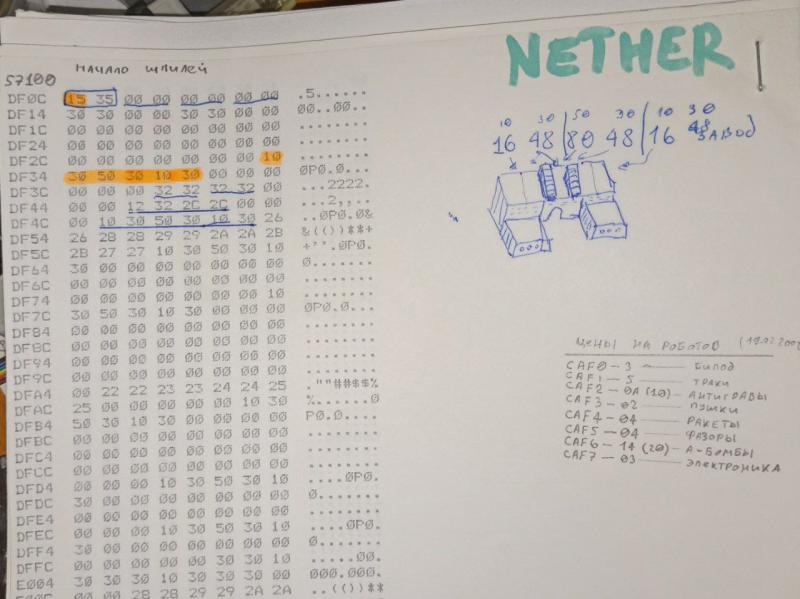 NETHER
НАЧАЛО ШПИЛЕЙ
57100
DF0C 15 35 00 00 00 00 00 00 .5......
DF14 30 30 00 00 30 30 00 00 00..00..
DF1C 00 00 00 00 00 00 00 00 ........
DF24 00 00 00 00 00 00 00 00 ........
DF2C 00 00 00 00 00 00 00 10 ........
DF34 30 50 30 10 30 00 00 00 0P0.0...
DF3C 00 00 00 32 32 32 32 00 ...2222.
DF44 00 00 12 32 2C 2C 00 00 ...2,,..
DF4C 00 10 30 50 30 10 30 26 ..0P0.0&
DF54 26 28 28 29 29 2A 2A 2B &(())**+
DF5C 2B 27 27 10 30 50 30 10 +''.0P0.
DF64 30 00 00 00 00 00 00 00 0.......
DF6C 00 00 00 00 00 00 00 00 ........
DF74 00 00 00 00 00 00 00 10 ........
DF7C 30 50 30 10 30 00 00 00 0P0.0...
DF84 00 00 00 00 00 00 00 00 ........
DF8C 00 00 00 00 00 00 00 00 ........
DF94 00 00 00 00 00 00 00 00 ........
DF9C 00 00 00 00 00 00 00 00 ........
DFA4 00 22 22 23 23 24 24 25 .""##$$%
DFAC 25 00 00 00 00 00 10 30 %......0
DFB4 50 30 10 30 00 00 00 00 P0.0....
DFBC 00 00 00 00 00 00 00 00 ........
DFC4 00 00 00 00 00 00 00 00 ........
DFCC 00 00 00 00 00 00 00 00 ........
DFD4 00 00 00 10 30 50 30 10 ....0P0.
DFDC 30 00 00 00 00 00 00 00 0.......
DFE4 00 00 00 00 00 00 00 00 ........
DFEC 00 00 00 10 30 50 30 10 ....0P0.
DFF4 30 00 00 00 00 00 00 00 0.......
DFFC 00 00 00 00 00 30 30 10 .....00.
E004 30 30 30 10 30 30 30 00 000.000.
00 00 28 28 29 29 2A 2A ..(())**
10 30 50 30 10 30
16 48 80 48 16 48
ЗАВОД
ЦЕНЫ НА РОБОТОВ
CAF0 - 3 — БИПОД
CAF1 - 5 — ТРАКИ
CAF2 - 0A (10) - АНТИГРАВЫ
CAF3 - 02 — ПУШКИ
CAF4 - 04 — РАКЕТЫ
CAF5 - 04 — ФАЗОРЫ
CAF6 - 14 (20) - А-БОМБЫ
CAF7 - 03 — ЭЛЕКТРОНИКА